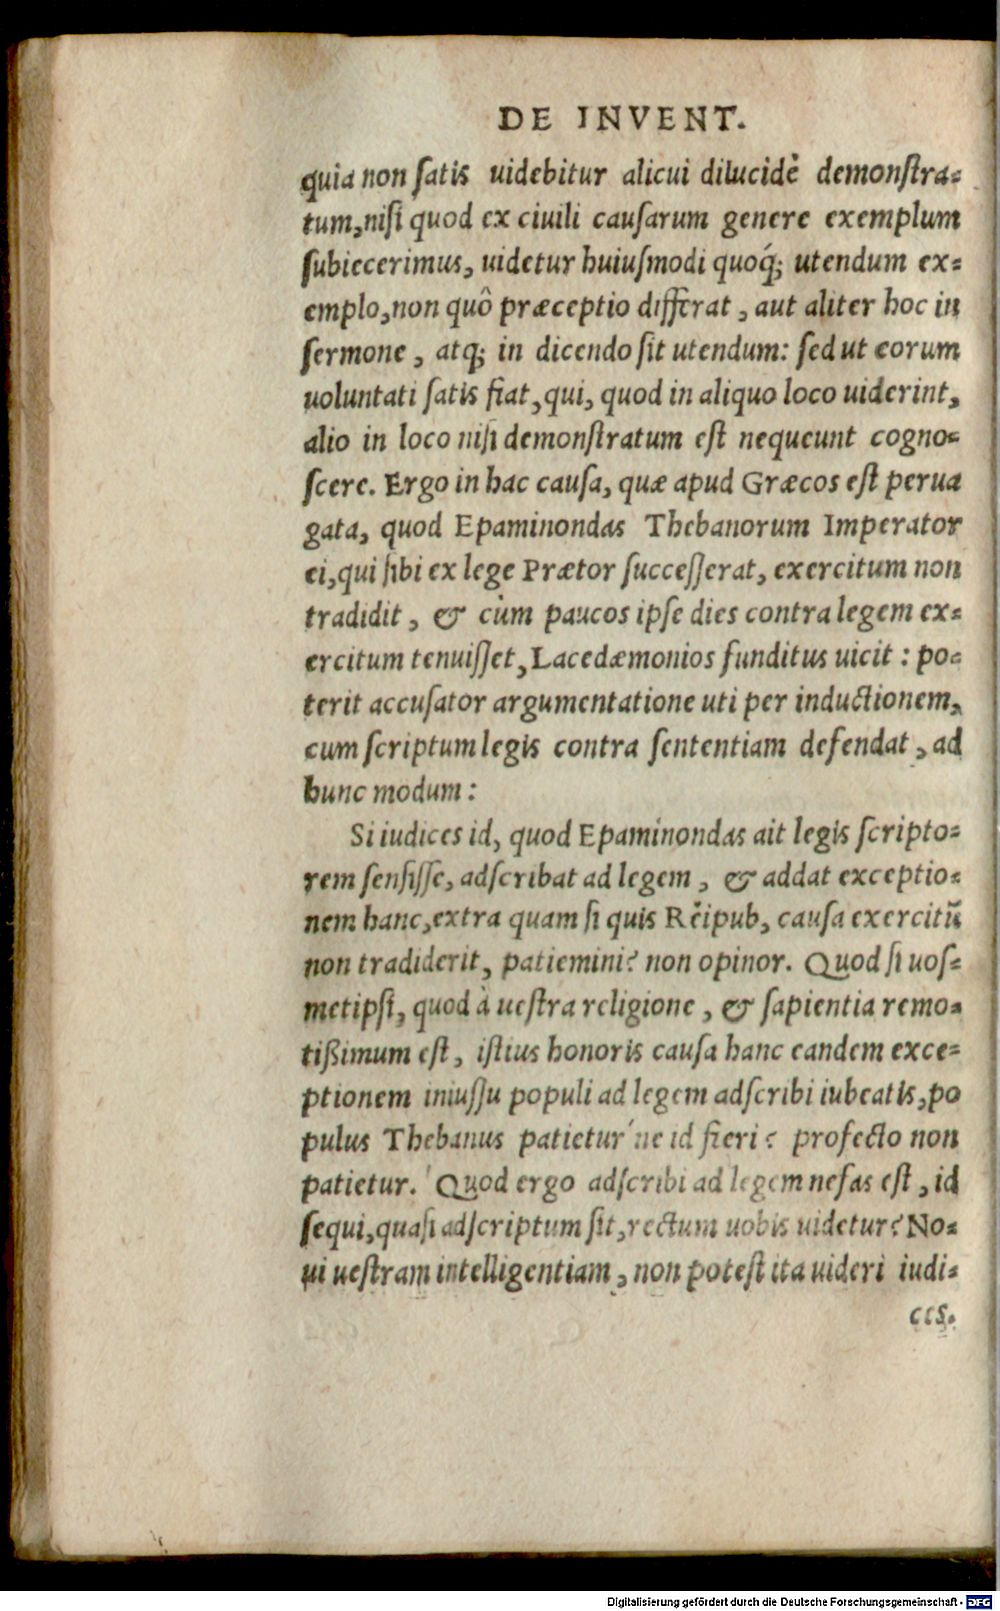 DE INVENT.
quia non ſatis uidebitur alicui dilucidè demonſtra-
tum, niſi quod ex ciuili cauſarum genere exemplum
ſubiecerimus, uidetur huiuſmodi quoq́; utendum ex-
emplo, non quô præceptio differat, aut aliter hoc in
ſermone, atq; in dicendo ſit utendum: ſed ut eorum
uoluntati ſatis fiat, qui, quod in aliquo loco uiderint,
alio in loco niſi demonſtratum eſt nequeunt cogno-
ſcere. Ergo in hac cauſa, quæ apud Græcos eſt perua
gata, quod Epaminondas Thebanorum Imperator
ei, qui ſibi ex lege Prætor ſucceſſerat, exercitum non
tradidit, & cùm paucos ipſe dies contra legem ex-
ercitum tenuiſſet, Lacedæmonios funditus uicit: po-
terit accuſator argumentatione uti per inductionem,
cum ſcriptum legis contra ſententiam defendat, ad
hunc modum:
Si iudices id, quod Epaminondas ait legis ſcripto-
rem ſenſiſſe, adſcribat ad legem, & addat exceptio-
nem hanc, extra quam ſi quis Rèipub, cauſa exercitū
non tradiderit, patiemini? non opinor. Quod ſi uoſ-
metipſi, quod à ueſtra religione, & ſapientia remo-
tißimum eſt, iſtius honoris cauſa hanc eandem exce-
ptionem iniuſſu populi ad legem adſcribi iubeatis, po
pulus Thebanus patietur'ne id fieri? profecto non
patietur. Quod ergo adſcribi ad legem nefas eſt, id
ſequi, quaſi adſcriptum ſit, rectum uobis uidetur? No-
ui ueſtram intelligentiam, non poteſt ita uideri iudi-
ces.
Digitalisierung gefördert durch die Deutsche Forschungsgemeinschaft - DFG